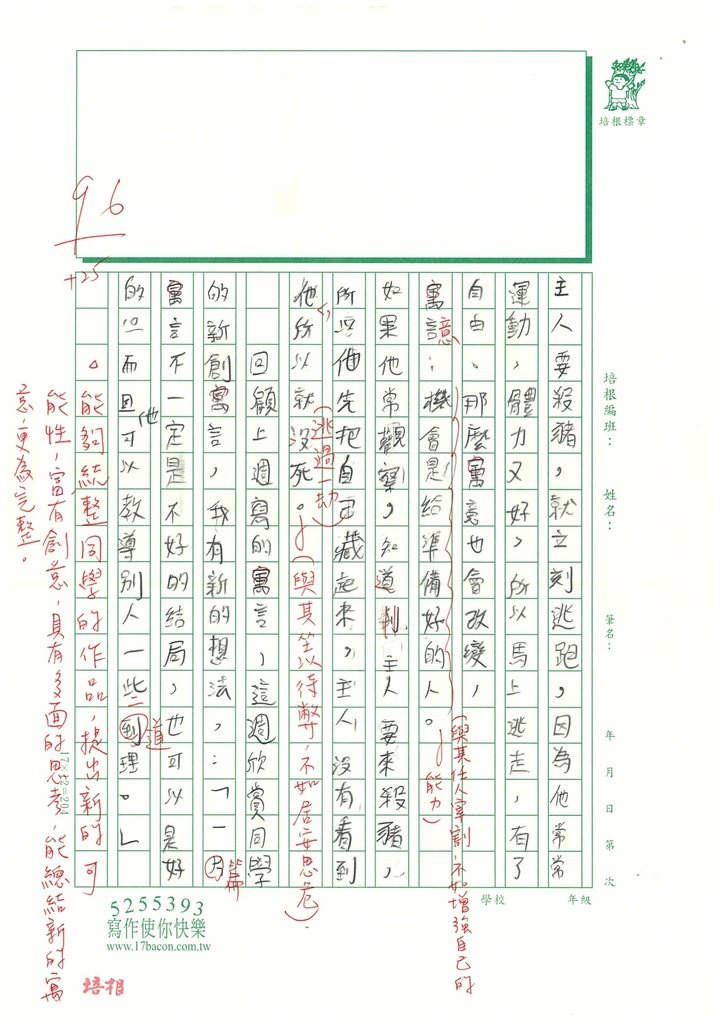 培根標章
培根編班：　姓名：　筆名：　年　月　日　第　次
學校　年級
主人要殺豬，就立刻逃跑，因為他常常
運動，體力又好，所以馬上逃走，有了
自由。那麼寓意也會改變，
(與其任人宰割，不如增強自己的能力)
寓意：機會是給準備好的人。
如果他常觀察，知道主人要來殺豬，
所以他先把自己藏起來，主人沒有看到
他，所以就沒死。
(逃過一劫)
(與其坐以待斃，不如居安思危)。
回顧上週寫的寓言，這週欣賞同學
的新創寓言，我有新的想法，：「一篇
寓言不一定是不好的結局，也可以是好
的，而且他可以教導別人一些道理。」
能夠統整同學的作品，提出新的可
能性，富有創意，具有多面的思考，能總結新的寓
意，更為完整。
96
+25
17×12=204
5255393
寫作使你快樂
www.17bacon.com.tw
培根